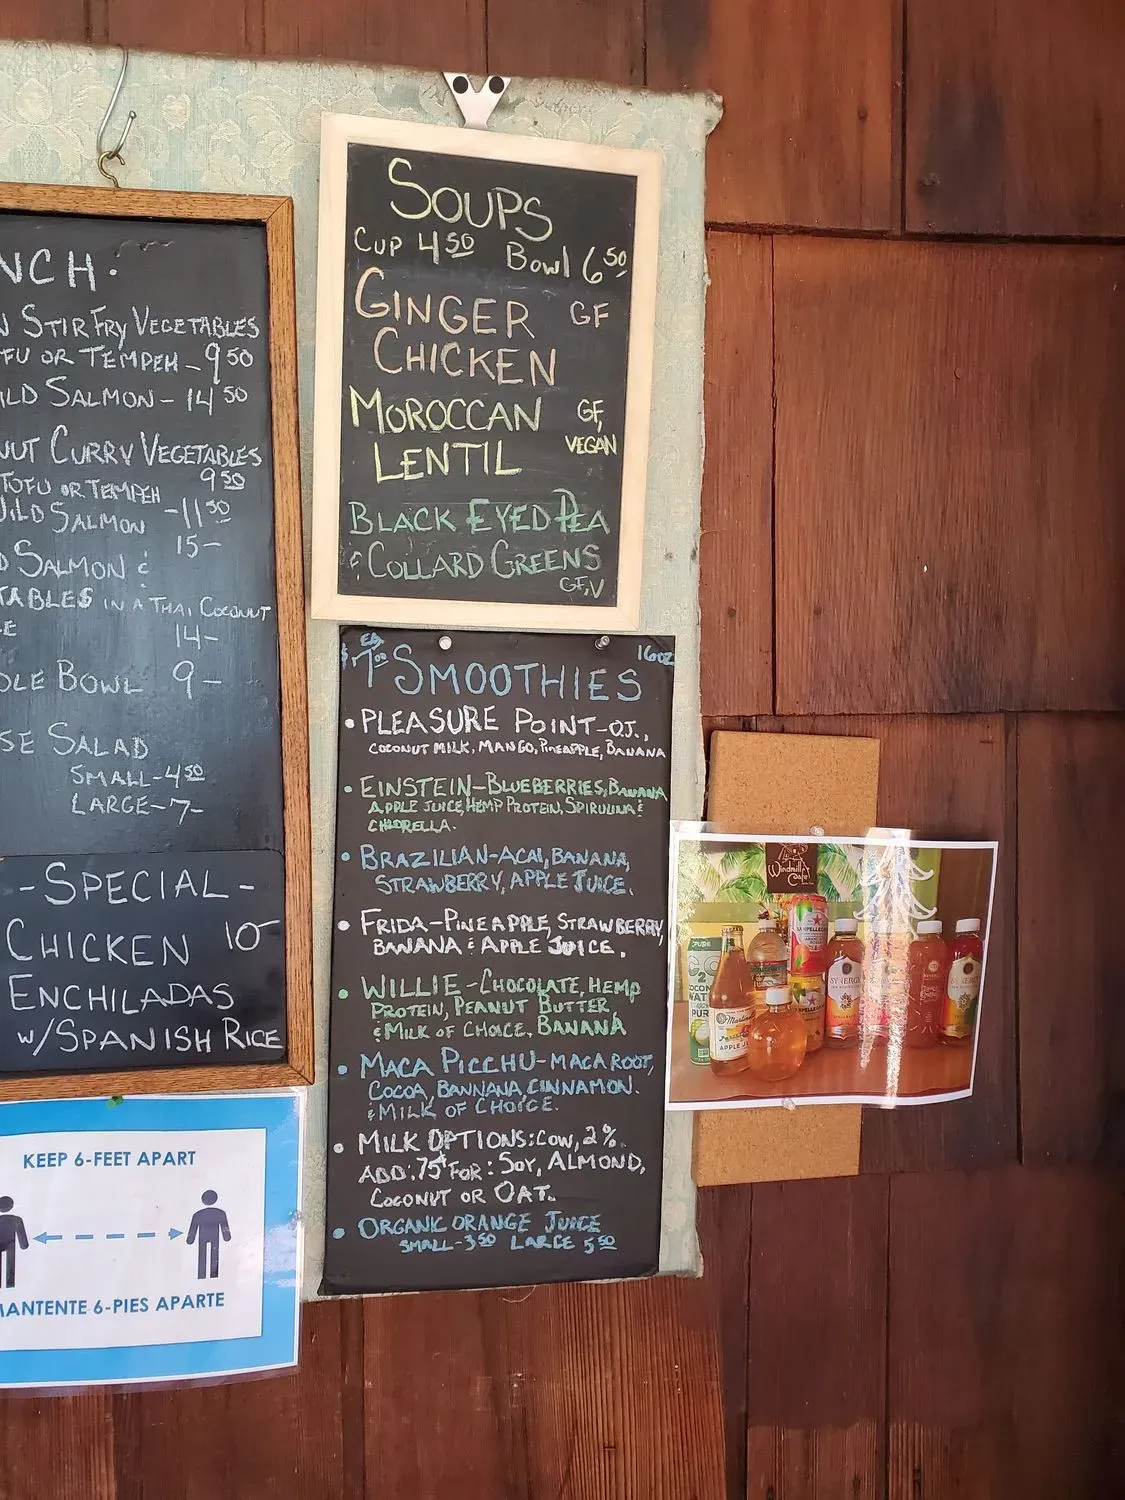 NCH.
STIR FRY VEGETABLES
FU OR TEMPEH - 9 50
ILD SALMON - 14 50
NUT CURRY VEGETABLES
9 50
TOFU OR TEMPEH - 11 50
WILD SALMON 15 -
D SALMON &
TABLES IN A THAI COCONUT
E 14 -
OLE BOWL 9 -
SE SALAD
SMALL - 4 50
LARGE - 7 -
- SPECIAL -
CHICKEN 10 -
ENCHILADAS
W/ SPANISH RICE
KEEP 6-FEET APART
MANTENTE 6-PIES APARTE
SOUPS
CUP 4 50 BOWL 6 50
GINGER GF
CHICKEN
MOROCCAN GF,
LENTIL VEGAN
BLACK EYED PEA
& COLLARD GREENS
GF, V
EA.
SMOOTHIES 16 OZ
• PLEASURE POINT - OJ.,
COCONUT MILK, MANGO, PINEAPPLE, BANANA
• EINSTEIN - BLUEBERRIES, BANANA
APPLE JUICE, HEMP PROTEIN, SPIRULINA &
CHLORELLA.
• BRAZILIAN - ACAI, BANANA,
STRAWBERRY, APPLE JUICE.
• FRIDA - PINEAPPLE, STRAWBERRY,
BANANA & APPLE JUICE.
• WILLIE - CHOCOLATE, HEMP
PROTEIN, PEANUT BUTTER,
& MILK OF CHOICE, BANANA
• MACA PICCHU - MACA ROOT,
COCOA, BANNANA, CINNAMON.
& MILK OF CHOICE.
• MILK OPTIONS: COW, 2%.
ADD .75¢ FOR: SOY, ALMOND,
COCONUT OR OAT.
• ORGANIC ORANGE JUICE
SMALL - 3 50 LARGE 5 50
Windmill
Cafe
PURE
C2O
COCONUT
WATER
PURE
Martinelli's
APPLE JUICE
SANPELLEGRINO
SYNERGY